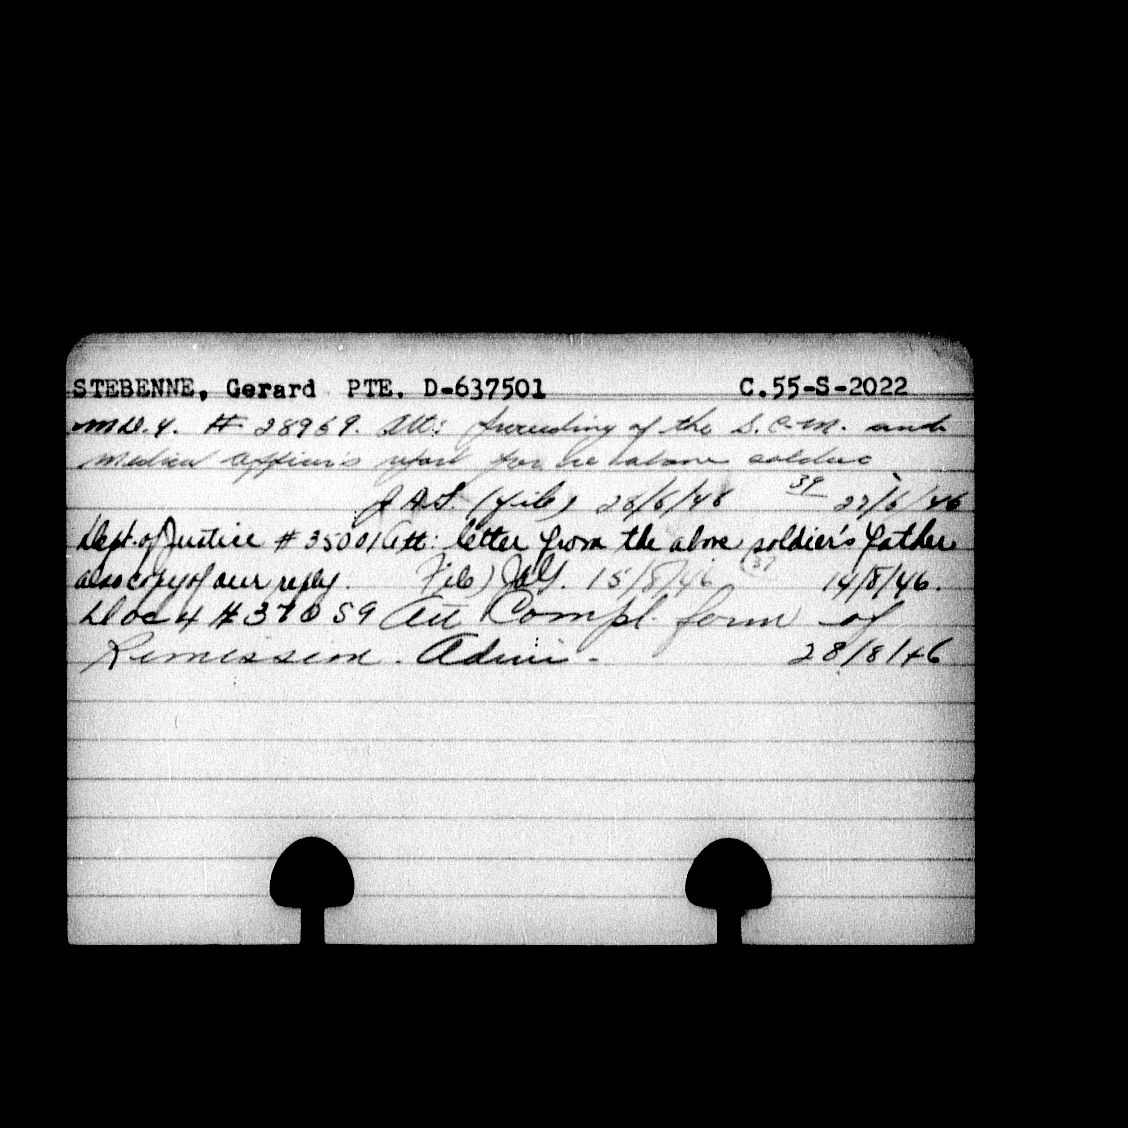 STEBENNE, Gerard PTE. D-637501 C.55-S-2022
M.D.4. # 28969. Att: proceeding of the S.C.M. and
medical officer's report for the above soldier
J.A.G. (file) 28/6/48 39 27/6/46
Dept. of Justice # 35001 Att: letter from the above soldier's father
also copy of our reply. File) JAG. 15/8/46 (37 14/8/46.
Doc 4 # 37059 Att Compl. form of
Remission. Admin. 28/8/46